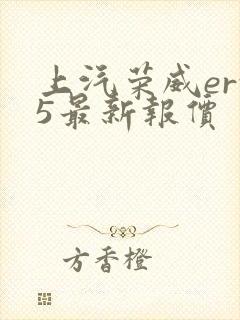 上汽荣威er
5最新報價
方香橙